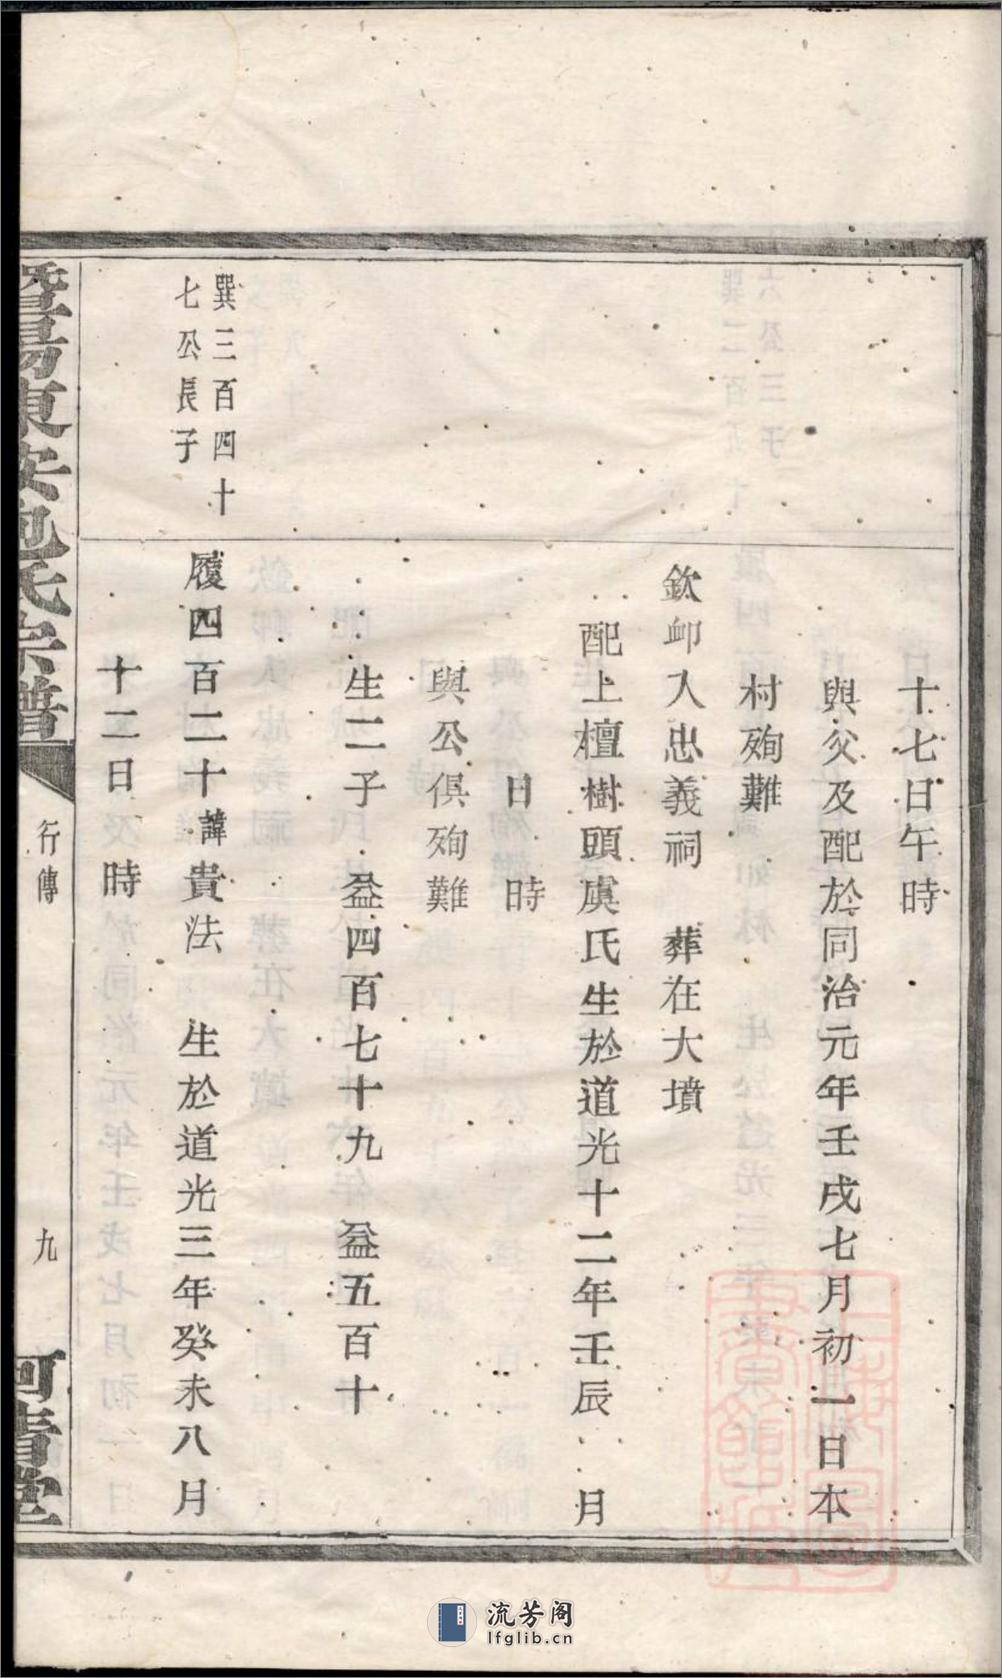 十七日午時
與父及配於同治元年壬戌七月初一日本
村殉難
欽卹入忠義祠 葬在大墳
配上檀樹頭虞氏生於道光十二年壬辰 月
日 時
與公俱殉難
生二子 益四百七十九 益五百十
巽三百四十
七公長子
履四百二十諱貴法 生於道光三年癸未八月
十二日 時
暨陽東安包氏宗譜
行傳
九
河清堂
流芳阁
lfglib.cn